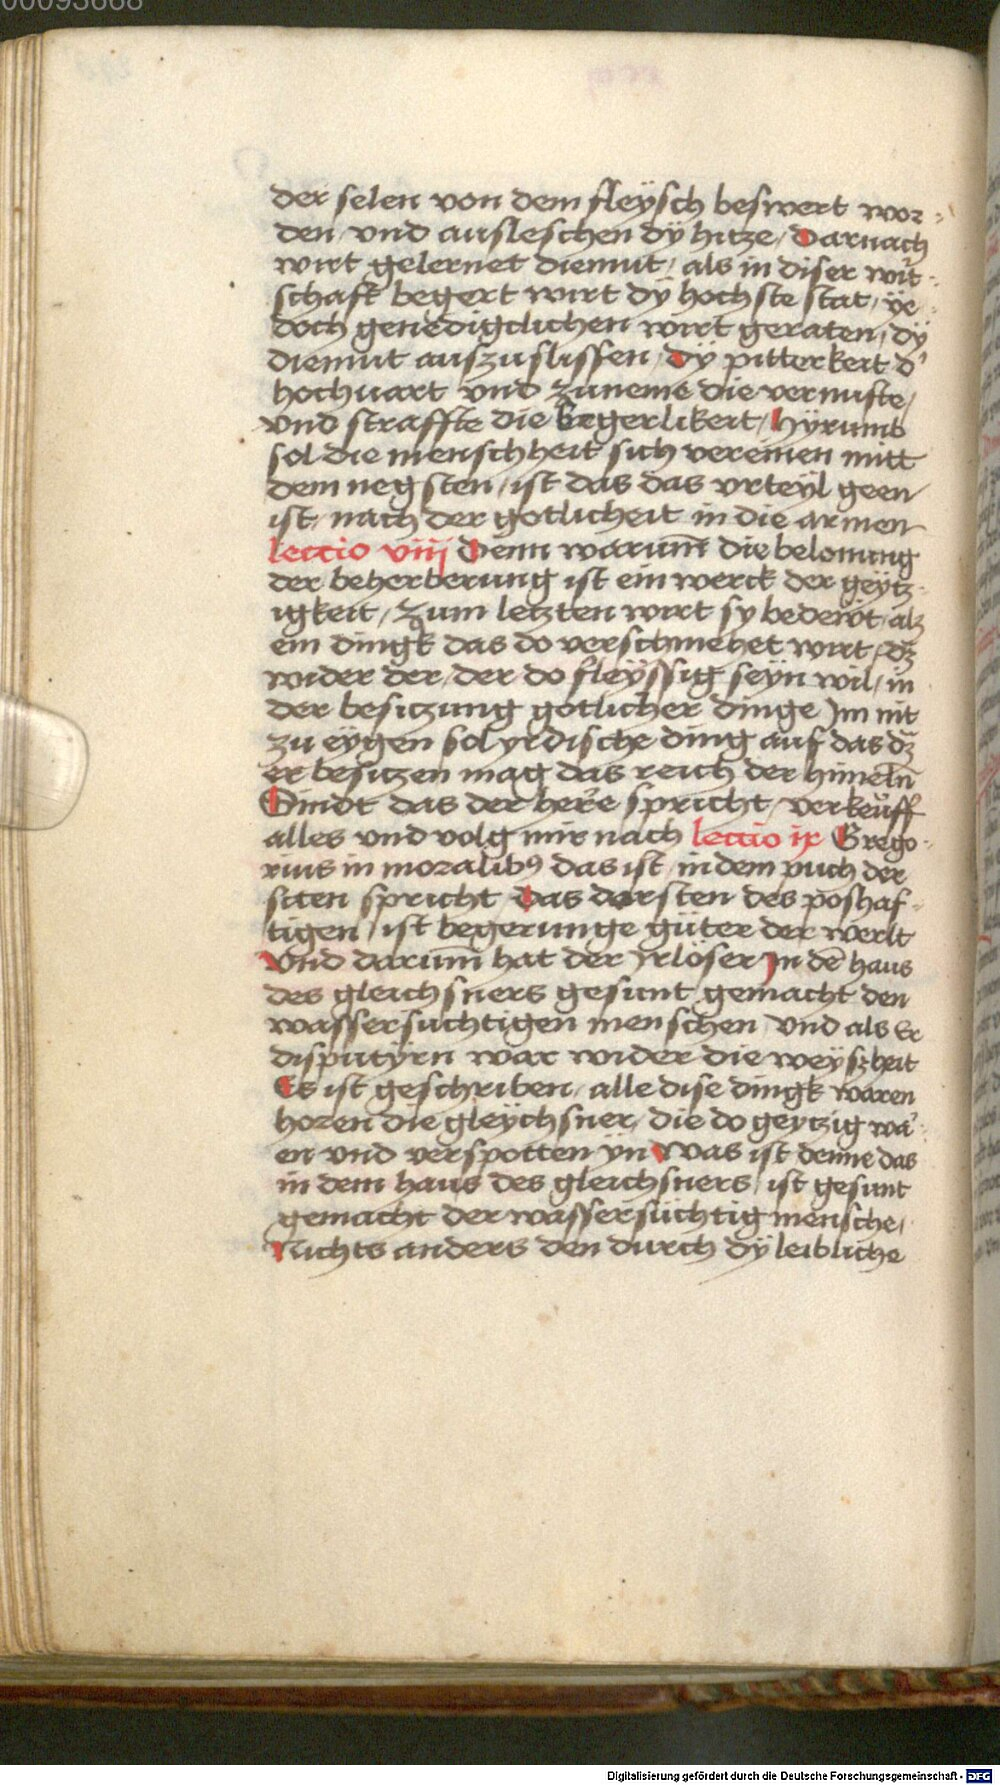 00093668
der selen von dem fleÿsch beswert wor-
den und ausleschen dÿ hitze / Darnach
wirt gelernet diemut / als in diser wirt-
schaft begert wirt dÿ hochste stat / ÿe
doch genedigclichen wirt geraten / dÿ
diemut auszuslissen / dÿ pitterkeit d'
hochuart und zuneme die vernufte /
und straffte die begerlikeit / Hÿrumb
sol die menschheit sich vereinen mitt
dem negsten / ist das das urteÿl geen
ist / nach der gotlicheit in die armen
lectio viij Denn warum̄ die belonung
der beherberung ist ein werck der geytz-
igkeit / Zum letzten wirt sy bedewt / als
ein dingk das do verschmehet wirt / dz
wider der / der do fleÿssig seyn wil / in
der besitzung gotlicher dinge Im nit
zu eÿgen sol yrdische ding auf das dz
er besitzen mag das reich der himeln̄
Sindt das der here spricht / verkeuff
alles und volg mir nach lectio ix Grego-
rius in moralib9 das ist / in dem puch der
siten spricht Das dorsten des poshaf-
tigen / ist begerunge güter der werlt
Und darum̄ hat der Erlöser In dē haus
des gleichsners gesunt gemacht den
wassersuchtigen menschen und als Er
disputyrn war wider die weÿszheit
Es ist geschriben / alle dise dingk waren
horen die gleÿchsner / die do geytzig wa'-
en und verspotten yn Was ist denne das
in dem haus des gleichsners / ist gesunt
gemacht der wassersüchtig mensche /
Nichts anders den durch dÿ leibliche
Digitalisierung gefördert durch die Deutsche Forschungsgemeinschaft - DFG